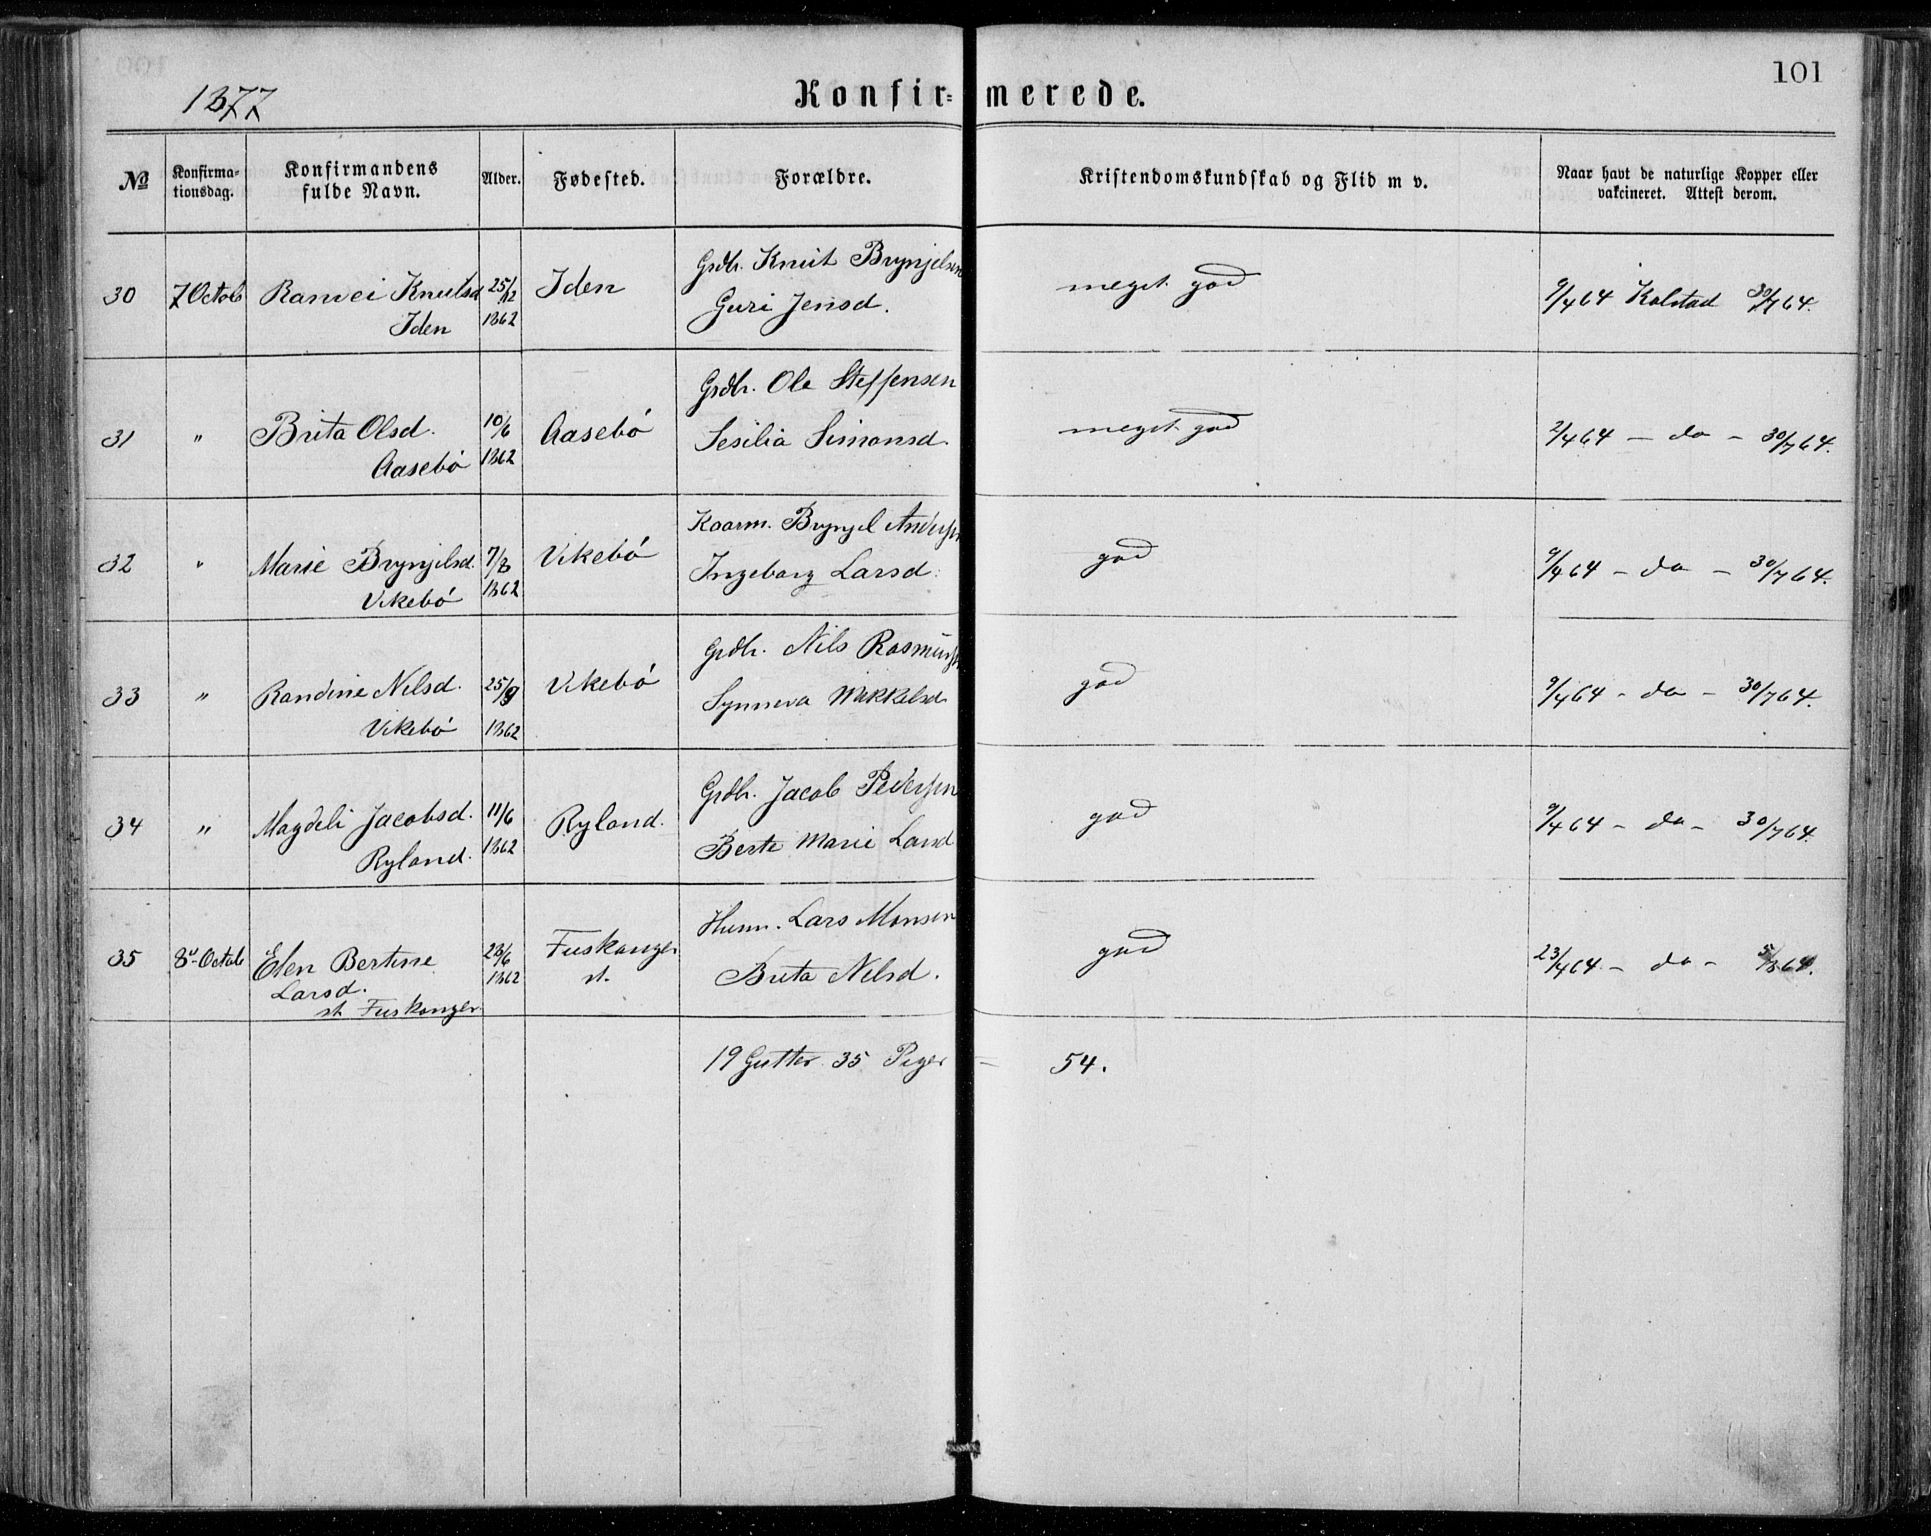 101
1877
Konfirmerede.
№ Konfirmationsdag. Konfirmandens fulde Navn. Alder. Fødested. Forældre. Kristendomskundskab og Flid m v. Naar havt de naturlige Kopper eller vakcineret. Attest derom.
30 7 Octob Ranvei Knutsd Iden 25/12 1862 Iden Grdbr. Knut Brynjelsen Guri Jensd. meget god 9/4 64 Kolstad 30/7 64.
31 " Brita Olsd. Aasebø 10/6 1862 Aasebø Grdbr. Ole Steffensen Sesilia Simonsd. meget god 2/4 64 – do – 30/7 64.
32 " Marie Brynjelsd. Vikebø 7/8 1862 Vikebø Kaarm. Brynjel Anders Ingeborg Larsd. god 9/4 64 – do – 30/7 64.
33 " Randine Nilsd. Vikebø 25/9 1862 Vikebø Grdbr. Nils Rasmus Synneva Mikkelsd. god 9/4 64 – do – 30/7 64.
34 " Magdeli Jacobsd. Ryland. 11/6 1862 Ryland. Grdbr. Jacob Pedersen Berte Marie Larsd god 9/4 64 – do – 30/7 64.
35 8de Octob Elen Bertine Larsd. st Fuskanger 28/6 1862 Fuskanger st. Husm. Lars Monsen Brita Nilsd. god 23/4 64 – do – 5/8 64.
19 Gutter 35 Piger – 54.